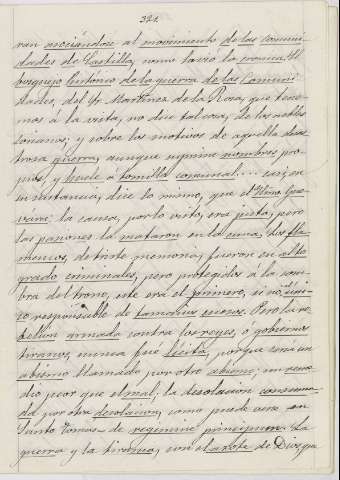 321.
ran asociándose al movimiento de las comuni-
dades de Castilla, como
bosquejo histórico de la guerra de las Comuni-
dades, del Sr. Martinez de la Rosa, que tene-
mos á la vista, no dice tal cosa, de los nobles
y sobre los motivos de aquella desas-
trosa guerra, aunque nombres pro-
pios y huele á tomillo comunal....
en sustancia, dice lo mismo, que el Ilmo. Gue-
vara: la causa, por lo visto, era justa, pero
las pasiones la mataron en la cuna. Los fla-
mencos, de triste memoria, fueron en alto
grado criminales, pero protegidos á la som-
bra del trono, este era el primero, si no el úni-
co responsable de tamaños escesos. Pero la re-
belion armada contra los reyes, ó gobiernos
tiranos, nunca fué lícita, porque será un
abismo llamado por otro abismo; un reme-
dio peor que el mal; la desolacion consuma-
da por otra desolacion, como puede verse en
Santo Tomas— de regimine principum. La
guerra y la tirania, son el azote de Dios, que